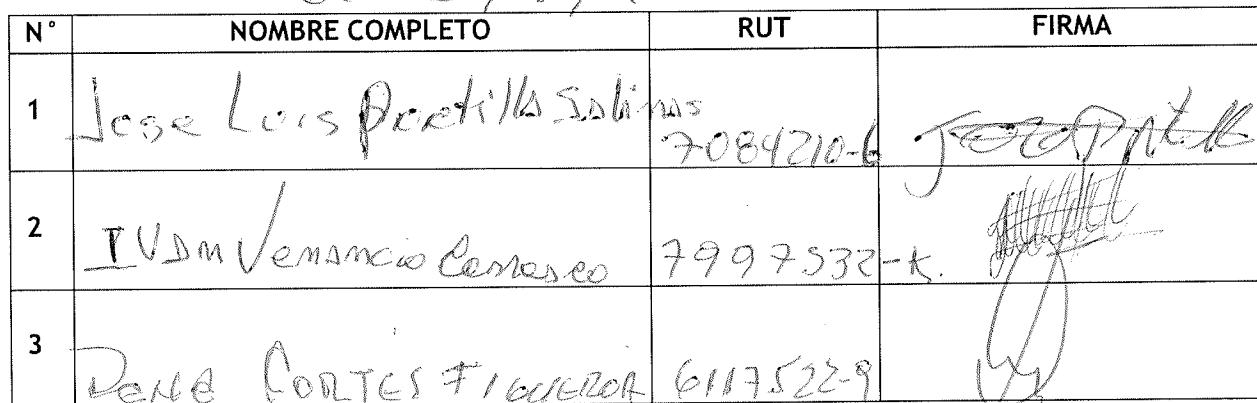 N° NOMBRE COMPLETO RUT FIRMA
1 Jose Luis Portilla Salinas 7084210-6
2 IVan Venancio Carrasco 7997532-K.
3 CORTES FIGUEROA 6117522-9